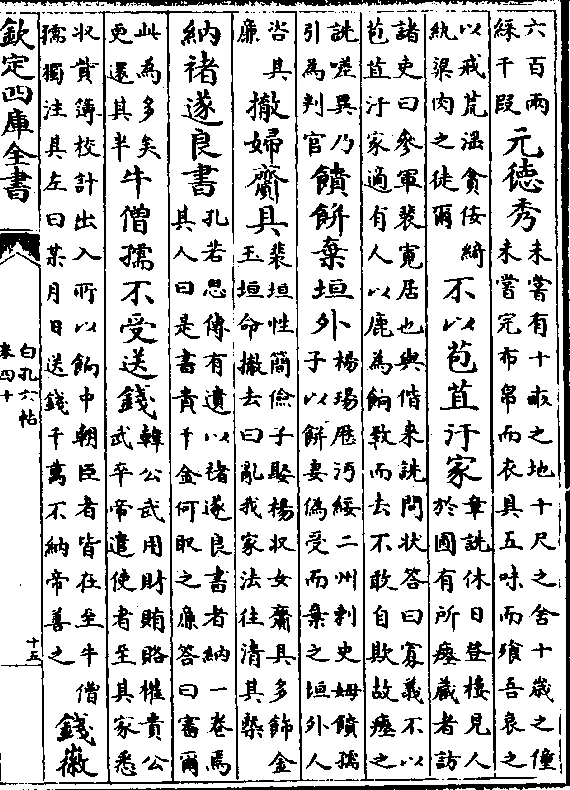 六百兩
綵千段
元德秀
未嘗有十畝之地十尺之舍十歲之僮
未嘗完布帛而衣具五味而飡吾哀之
以戒荒淫貪佞綺
紈粱肉之徒爾
不以苞苴汙家
韋詵休日登樓見人
於圃有所瘞藏者訪
諸吏曰參軍裴寛居也與偕来詵問状答曰寡義不以
苞苴汙家適有人以鹿為餉致而去不敢自欺故瘞之
詵嗟異乃
引為判官
饋餅棄垣外
楊瑒歴沔綏二州刺史姆饋孺
子以餅妻偽受而棄之垣外人
咨其
廉
撤婦齋具
裴垣性簡儉子娶楊収女齋具多飾金
玉垣命撤去曰亂我家法往清其槩
納褚遂良書
孔若思傳有遺以褚遂良書者納一卷焉
其人曰是書貴千金何取之廉答曰審爾
此為多矣
更還其半
牛僧孺不受送錢
韓公武用財賄賂權貴公
武卒帝遣使者至其家悉
収貲簿校計出入所以餉中朝臣者皆在至牛僧
孺獨注其左曰某月日送錢千萬不納帝善之
錢徽
欽定四庫全書
白孔六帖
卷四十
十五